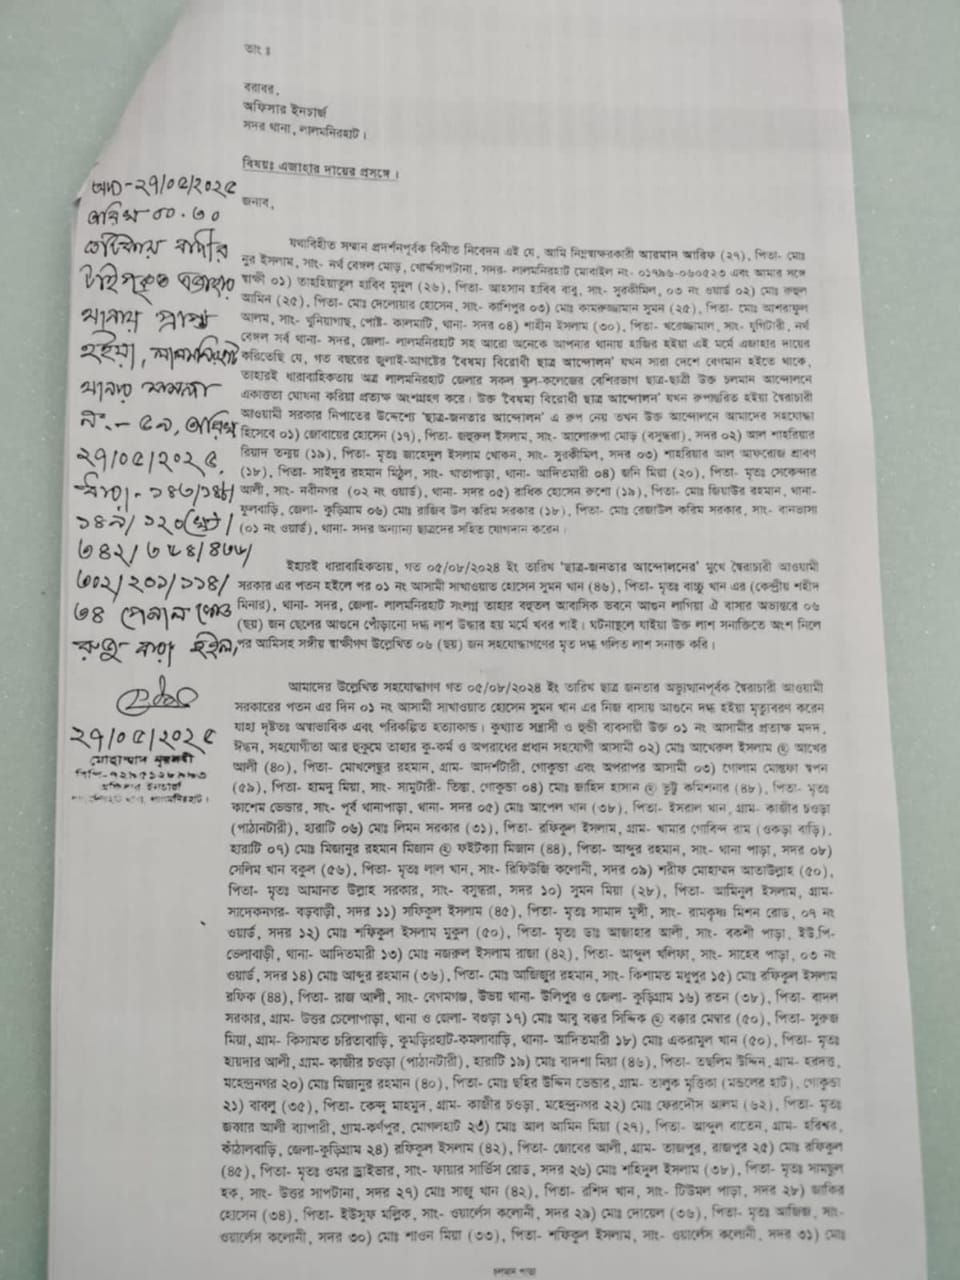 তাং ঃ
বরাবর,
অফিসার ইনচার্জ
সদর থানা, লালমনিরহাট।
বিষয়ঃ এজাহার দায়ের প্রসঙ্গে।
জনাব,
যথাবিহীত সম্মান প্রদর্শনপূর্বক বিনীত নিবেদন এই যে, আমি নিম্নস্বাক্ষরকারী আরমান আরিফ (২৭), পিতা- মোঃ
নুর ইসলাম, সাং- নর্থ বেঙ্গল মোড়, খোর্দ্দসাপটানা, সদর- লালমনিরহাট মোবাইল নং- ০১৭৯৬-০৬০৫২৩ এবং আমার সঙ্গে
স্বাক্ষী ০১) তাহহিয়াতুল হাবিব মৃদুল (২৬), পিতা- আহসান হাবিব বাবু, সাং- সুরকীমিল, ০৩ নং ওয়ার্ড ০২) মোঃ রুহুল
আমিন (২৫), পিতা- মোঃ দেলোয়ার হোসেন, সাং- কাশিপুর ০৩) মোঃ কামরুজ্জামান সুমন (২৫), পিতা- মোঃ আশরাফুল
আলম, সাং- খুনিয়াগাছ, পোষ্ট- কালমাটি, থানা- সদর ০৪) শাহীন ইসলাম (৩০), পিতা- খরেজ্জামাল, সাং- যুগিটারী, নর্থ
বেঙ্গল সর্ব থানা- সদর, জেলা- লালমনিরহাট সহ আরো অনেকে আপনার থানায় হাজির হইয়া এই মর্মে এজাহার দায়ের
করিতেছি যে, গত বছরের জুলাই-আগষ্টের ‘বৈষম্য বিরোধী ছাত্র আন্দোলন’ যখন সারা দেশে বেগমান হইতে থাকে,
তাহারই ধারাবাহিকতায় অত্র লালমনিরহাট জেলার সকল স্কুল-কলেজের বেশিরভাগ ছাত্র-ছাত্রী উক্ত চলমান আন্দোলনে
একাত্ততা ঘোষনা করিয়া প্রত্যক্ষ অংশগ্রহণ করে। উক্ত ‘বৈষম্য বিরোধী ছাত্র আন্দোলন’ যখন রুপান্তরিত হইয়া স্বৈরাচারী
আওয়ামী সরকার নিপাতের উদ্দেশ্যে ‘ছাত্র-জনতার আন্দোলন’ এ রুপ নেয় তখন উক্ত আন্দোলনে আমাদের সহযোদ্ধা
হিসেবে ০১) জোবায়ের হোসেন (১৭), পিতা- জহুরুল ইসলাম, সাং- আলোরুপা মোড় (বসুন্ধরা), সদর ০২) আল শাহরিয়ার
রিয়াদ তন্ময় (১৯), পিতা- মৃতঃ জাহেদুল ইসলাম খোকন, সাং- সুরকীমিল, সদর ০৩) শাহরিয়ার আল আফরোজ শ্রাবণ
(১৮), পিতা- সাইদুর রহমান মিঠুল, সাং- খাতাপাড়া, থানা- আদিতমারী ০৪) জনি মিয়া (২০), পিতা- মৃতঃ সেকেন্দার
আলী, সাং- নবীনগর (০২ নং ওয়ার্ড), থানা- সদর ০৫) রাধিক হোসেন রুশো (১৯), পিতা- মোঃ জিয়াউর রহমান, থানা-
ফুলবাড়ি, জেলা- কুড়িগ্রাম ০৬) মোঃ রাজিব উল করিম সরকার (১৮), পিতা- মোঃ রেজাউল করিম সরকার, সাং- বানভাসা
(০১ নং ওয়ার্ড), থানা- সদর অন্যান্য ছাত্রদের সহিত যোগদান করেন।
ইহারই ধারাবাহিকতায়, গত ০৫/০৮/২০২৪ ইং তারিখ ‘ছাত্র-জনতার আন্দোলনের’ মুখে স্বৈরাচারী আওয়ামী
সরকার এর পতন হইলে পর ০১ নং আসামী সাখাওয়াত হোসেন সুমন খান (৪৬), পিতা- মৃতঃ বাচ্চু খান এর (কেন্দ্রীয় শহীদ
মিনার), থানা- সদর, জেলা- লালমনিরহাট সংলগ্ন তাহার বহুতল আবাসিক ভবনে আগুন লাগিয়া ঐ বাসার অভ্যন্তরে ০৬
(ছয়) জন ছেলের আগুনে পোঁড়ানো দগ্ধ লাশ উদ্ধার হয় মর্মে খবর পাই। ঘটনাস্থলে যাইয়া উক্ত লাশ সনাক্তিতে অংশ নিলে
পর আমিসহ সঙ্গীয় স্বাক্ষীগণ উল্লেখিত ০৬ (ছয়) জন সহযোদ্ধাগণের মৃত দগ্ধ গলিত লাশ সনাক্ত করি।
আমাদের উল্লেখিত সহযোদ্ধাগণ গত ০৫/০৮/২০২৪ ইং তারিখ ছাত্র জনতার অভ্যুত্থানপূর্বক স্বৈরাচারী আওয়ামী
সরকারের পতন এর দিন ০১ নং আসামী সাখাওয়াত হোসেন সুমন খান এর নিজ বাসায় আগুনে দগ্ধ হইয়া মৃত্যুবরণ করেন
যাহা দৃষ্টতঃ অস্বাভাবিক এবং পরিকল্পিত হত্যাকান্ড। কুখ্যাত সন্ত্রাসী ও হুন্ডী ব্যবসায়ী উক্ত ০১ নং আসামীর প্রত্যক্ষ মদদ,
ঈন্ধন, সহযোগীতা আর হুকুমে তাহার কু-কর্ম ও অপরাধের প্রধান সহযোগী আসামী ০২) মোঃ আখেরুল ইসলাম @ আখের
আলী (৪০), পিতা- মোখলেছুর রহমান, গ্রাম- আদর্শটারী, গোকুন্ডা এবং অপরাপর আসামী ০৩) গোলাম মোস্তফা স্বপন
(৫৯), পিতা- হামদু মিয়া, সাং- সামুটারী- তিস্তা, গোকুন্ডা ০৪) মোঃ জাহিদ হাসান @ ভুট্টু কমিশনার (৪৮), পিতা- মৃতঃ
কাশেম ভেন্ডার, সাং- পূর্ব থানাপাড়া, থানা- সদর ০৫) মোঃ আপেল খান (৩৮), পিতা- ইসরাল খান, গ্রাম- কাজীর চওড়া
(পাঠানটারী), হারাটি ০৬) মোঃ লিমন সরকার (৩১), পিতা- রফিকুল ইসলাম, গ্রাম- খামার গোবিন্দ রাম (ওকড়া বাড়ি),
হারাটি ০৭) মোঃ মিজানুর রহমান মিজান @ ফাইটক্যা মিজান (৪৪), পিতা- আব্দুর রহমান, সাং- থানা পাড়া, সদর ০৮)
সেলিম খান বকুল (৫৬), পিতা- মৃতঃ লাল খান, সাং- রিফিউজি কলোনী, সদর ০৯) শরীফ মোহাম্মদ আতাউল্লাহ (৫০),
পিতা- মৃতঃ আমানত উল্লাহ সরকার, সাং- বসুন্ধরা, সদর ১০) সুমন মিয়া (২৮), পিতা- আমিনুল ইসলাম, গ্রাম-
সাদেকনগর- বড়বাড়ী, সদর ১১) সফিকুল ইসলাম (৪৫), পিতা- মৃতঃ সামাদ মুন্সী, সাং- রামকৃষ্ণ মিশন রোড, ০৭ নং
ওয়ার্ড, সদর ১২) মোঃ শফিকুল ইসলাম মুকুল (৫০), পিতা- মৃতঃ ডাঃ আজাহার আলী, সাং- বকশী পাড়া, ইউ.পি-
ভেলাবাড়ী, থানা- আদিতমারী ১৩) মোঃ নজরুল ইসলাম রাজা (৪২), পিতা- আব্দুল খলিফা, সাং- সাহেব পাড়া, ০৩ নং
ওয়ার্ড, সদর ১৪) মোঃ আব্দুর রহমান (৩৬), পিতা- মোঃ আজিজুর রহমান, সাং- কিশামত মধুপুর ১৫) মোঃ রফিকুল ইসলাম
রফিক (৪৪), পিতা- রাজ আলী, সাং- বেগমগঞ্জ, উভয় থানা- উলিপুর ও জেলা- কুড়িগ্রাম ১৬) রতন (৩৮), পিতা- বাদল
সরকার, গ্রাম- উত্তর চেলোপাড়া, থানা ও জেলা- বগুড়া ১৭) মোঃ আবু বক্কর সিদ্দিক @ বক্কার মেম্বার (৫০), পিতা- সুরুজ
মিয়া, গ্রাম- কিসামত চরিতাবাড়ি, কুমড়িরহাট-কমলাবাড়ি, থানা- আদিতমারী ১৮) মোঃ একরামুল খান (৫০), পিতা- মৃতঃ
হায়দার আলী, গ্রাম- কাজীর চওড়া (পাঠানটারী), হারাটি ১৯) মোঃ বাদশা মিয়া (৪৬), পিতা- তছলিম উদ্দিন, গ্রাম- হরদত্ত,
মহেন্দ্রনগর ২০) মোঃ মিজানুর রহমান (৪০), পিতা- মোঃ ছহির উদ্দিন ভেন্ডার, গ্রাম- তালুক মৃত্তিকা (মন্ডলের হাট), গোকুন্ডা
২১) বাবলু (৩৫), পিতা- কেন্দু মাহমুদ, গ্রাম- কাজীর চওড়া, মহেন্দ্রনগর ২২) মোঃ ফেরদৌস আলম (৬২), পিতা- মৃতঃ
জব্বার আলী ব্যাপারী, গ্রাম-কর্ণপুর, মোগলহাট ২৩) মোঃ আল আমিন মিয়া (২৭), পিতা- আব্দুল বাতেন, গ্রাম- হরিশ্বর,
কাঁঠালবাড়ি, জেলা-কুড়িগ্রাম ২৪) রফিকুল ইসলাম (৪২), পিতা- জোবের আলী, গ্রাম- তাজপুর, রাজপুর ২৫) মোঃ রফিকুল
(৪৫), পিতা- মৃতঃ ওমর ড্রাইভার, সাং- ফায়ার সার্ভিস রোড, সদর ২৬) মোঃ শহিদুল ইসলাম (৩৮), পিতা- মৃতঃ সামছুল
হক, সাং- উত্তর সাপটানা, সদর ২৭) মোঃ সাজু খান (৪২), পিতা- রশিদ খান, সাং- টিউমল পাড়া, সদর ২৮) জাকির
হোসেন (৩৪), পিতা- ইউসুফ মল্লিক, সাং- ওয়ার্লেস কলোনী, সদর ২৯) মোঃ দোয়েল (৩৬), পিতা- মৃতঃ আজিজ, সাং-
ওয়ার্লেস কলোনী, সদর ৩০) মোঃ শাওন মিয়া (৩৩), পিতা- শফিকুল ইসলাম, সাং- ওয়ার্লেস কলোনী, সদর ৩১) মোঃ
চলমান পাতা
অদ্য-২৭/০৫/২০২৫
তারিখ ০০.৩০
ঘটিকায় বাদীর
টাইপকৃত এজাহার
থানায় প্রাপ্ত
হইয়া, লালমনিরহাট
থানার মামলা
নং- ৫৯, তারিখ
২৭/০৫/২০২৫,
ধারা- ১৪৩/১৪৮/
১৪৯/১২০(খ)/
৩৪২/৩৫৪/৪৩৬/
৩০২/২০১/১১৪/
৩৪ পেনাল কোড
রুজু করা হইল,
২৭/০৫/২০২৫
মোহাম্মদ নুরনবী
অফিসার ইনচার্জ
লালমনিরহাট থানা, লালমনিরহাট।